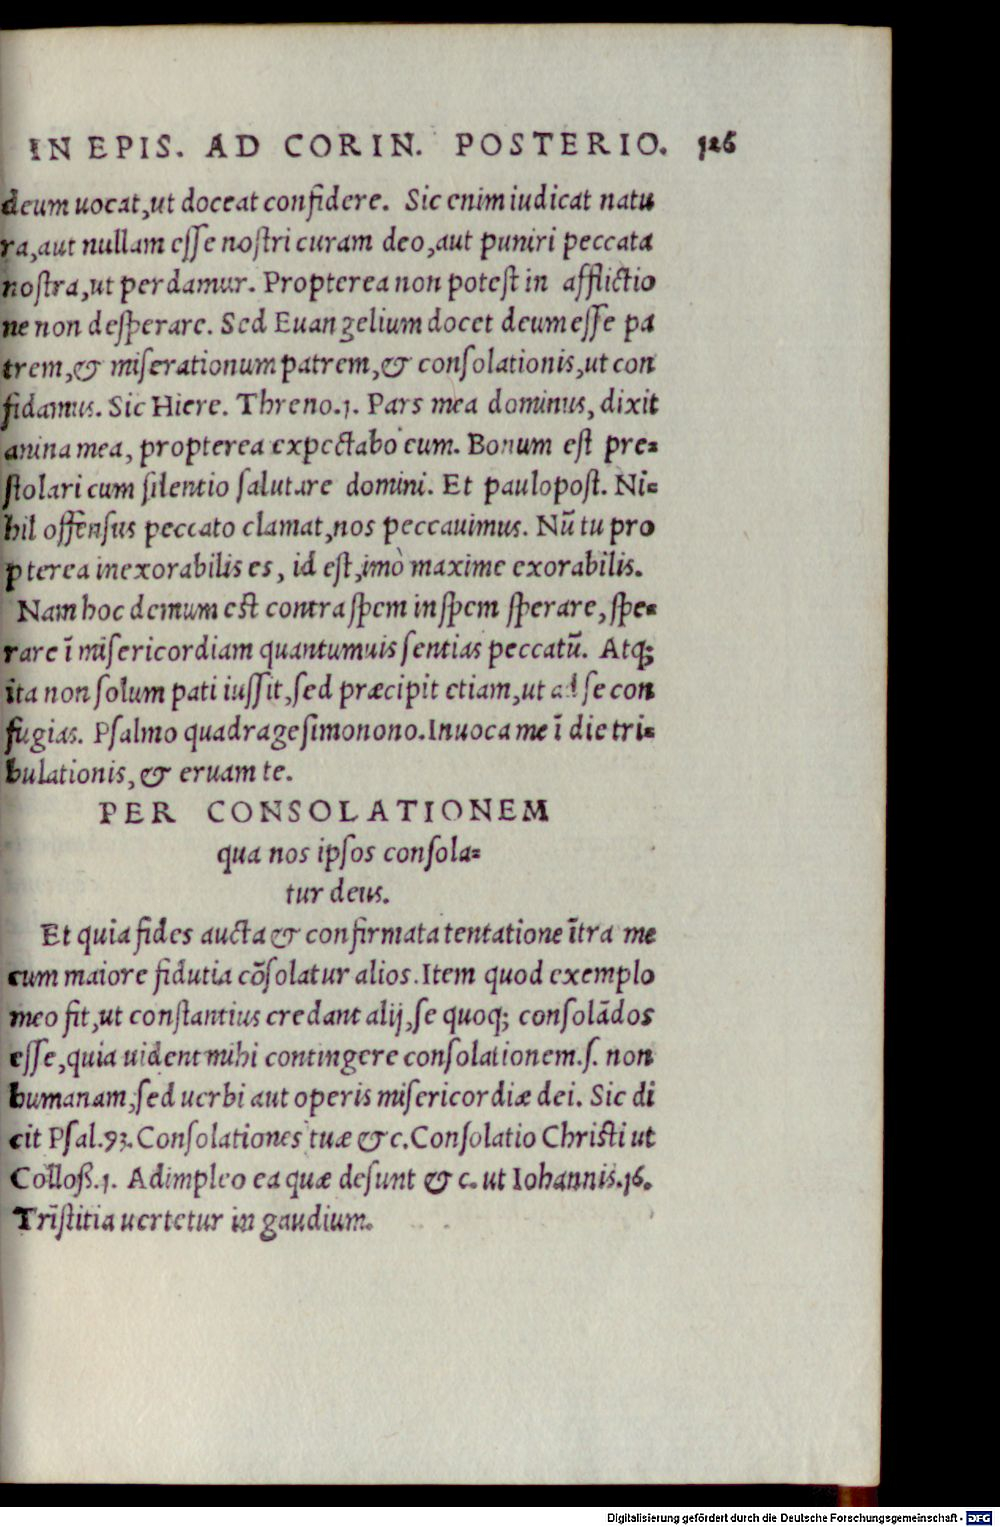 IN EPIS. AD CORIN. POSTERIO. 126
deum uocat,ut doceat confidere. Sic enim iudicat natu
ra,aut nullam eſſe noſtri curam deo,aut puniri peccata
noſtra,ut perdamur. Propterea non poteſt in afflictio
ne non deſperare. Sed Euangelium docet deum eſſe pa
trem,& miſerationum patrem,& conſolationis,ut con
fidamus. Sic Hiere. Threno.1. Pars mea dominus, dixit
anina mea, propterea expectabo eum. Bonum eſt pre=
ſtolari cum ſilentio ſalutare domini. Et paulopoſt. Ni=
hil offenſus peccato clamat,nos peccauimus. Nū tu pro
pterea inexorabilis es, id eſt,imò maxime exorabilis.
Nam hoc demum eſt contra ſpem in ſpem ſperare, ſpe=
rare ī miſericordiam quantumuis ſentias peccatū. Atq;
ita non ſolum pati iuſſit,ſed præcipit etiam,ut ad ſe con
fugias. Pſalmo quadrageſimonono.Inuoca me ī die tri=
bulationis, & eruam te.
PER CONSOLATIONEM
qua nos ipſos conſola=
tur deus.
Et quia fides aucta & confirmata tentatione ītra me
cum maiore fidutia cōſolatur alios.Item quod exemplo
meo fit,ut conſtantius credant alij,ſe quoq; conſolādos
eſſe,quia uident mihi contingere conſolationem.ſ. non
humanam,ſed uerbi aut operis miſericordiæ dei. Sic di
cit Pſal.93.Conſolationes tuæ & c.Conſolatio Chriſti ut
Colloß.1. Adimpleo ea quæ deſunt & c. ut Iohannis.16.
Triſtitia uertetur in gaudium.
Digitalisierung gefördert durch die Deutsche Forschungsgemeinschaft - DFG